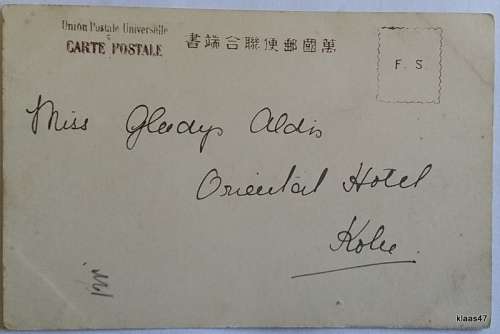 Union Postale Universelle
CARTE POSTALE
萬國郵便聯合端書
F. S.
Miss Gladys Aldis
Oriental Hotel
Kobe.
klaas47